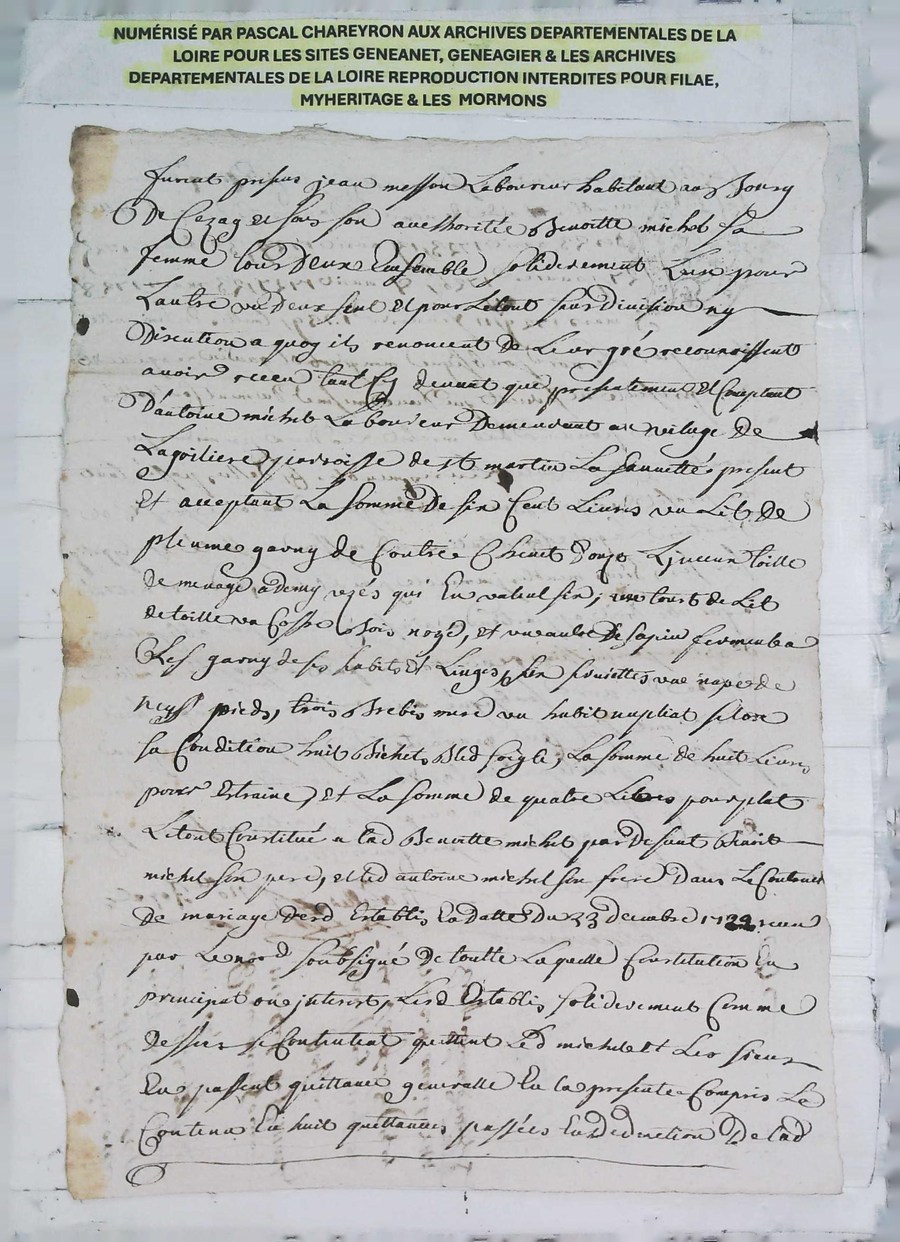 NUMÉRISÉ PAR PASCAL CHAREYRON AUX ARCHIVES DEPARTEMENTALES DE LA
LOIRE POUR LES SITES GENEANET, GENEAGIER & LES ARCHIVES
DEPARTEMENTALES DE LA LOIRE REPRODUCTION INTERDITES POUR FILAE,
MYHERITAGE & LES MORMONS
furent presens jean messon Laboureur habitant au Bourg
De Cezay et sous son authoritée Benoitte michel sa
femme tous Deux Ensemble soliderement Lun pour
Lautre un Deux seul et pour Letout sans Division ny
Discution a quoy ils renoncent de Leur gré reconnoissent
avoir réceu tant Cy devant que presentement et Comptant
D'antoine michel Laboureur Demeurant au vilage De
parroisse de st martin La sauvetté present
Et acceptant La somme De six Cent Livres un Lit de
plume garny de Contre Chevet Linceux toille
de menage a demy uzés qui En valent six, un tourt de Lit
de toille un Coffre Bois noyé, et un autre De sapin fermant a
Clef garny de ses habits et Linges, six serviettes une nape de
neuf pieds, trois Brebis mere un habit nuptial selon
sa Condition huit Bichets Bled soigle, La somme de huit Livres
pour Estraine, Et La somme de quatre Livres pour plat
Letout Constitué a lad Benoitte michel par Defunt Benoit
michel son pere, et led antoine michel son frere Dans Le Contract
De mariage Desd Establis En Datte Du 23 Decembre receu
par Le no.re soubsigné De toutte Laquelle Constitution En
principal ou interest, Lesd Establis solidérement Comme
dessus se Contentent quittent Led michel et Les siens
En passent quittance generalle En la presente Compris Le
Contenu En huit quittances passées En Deduction De lad